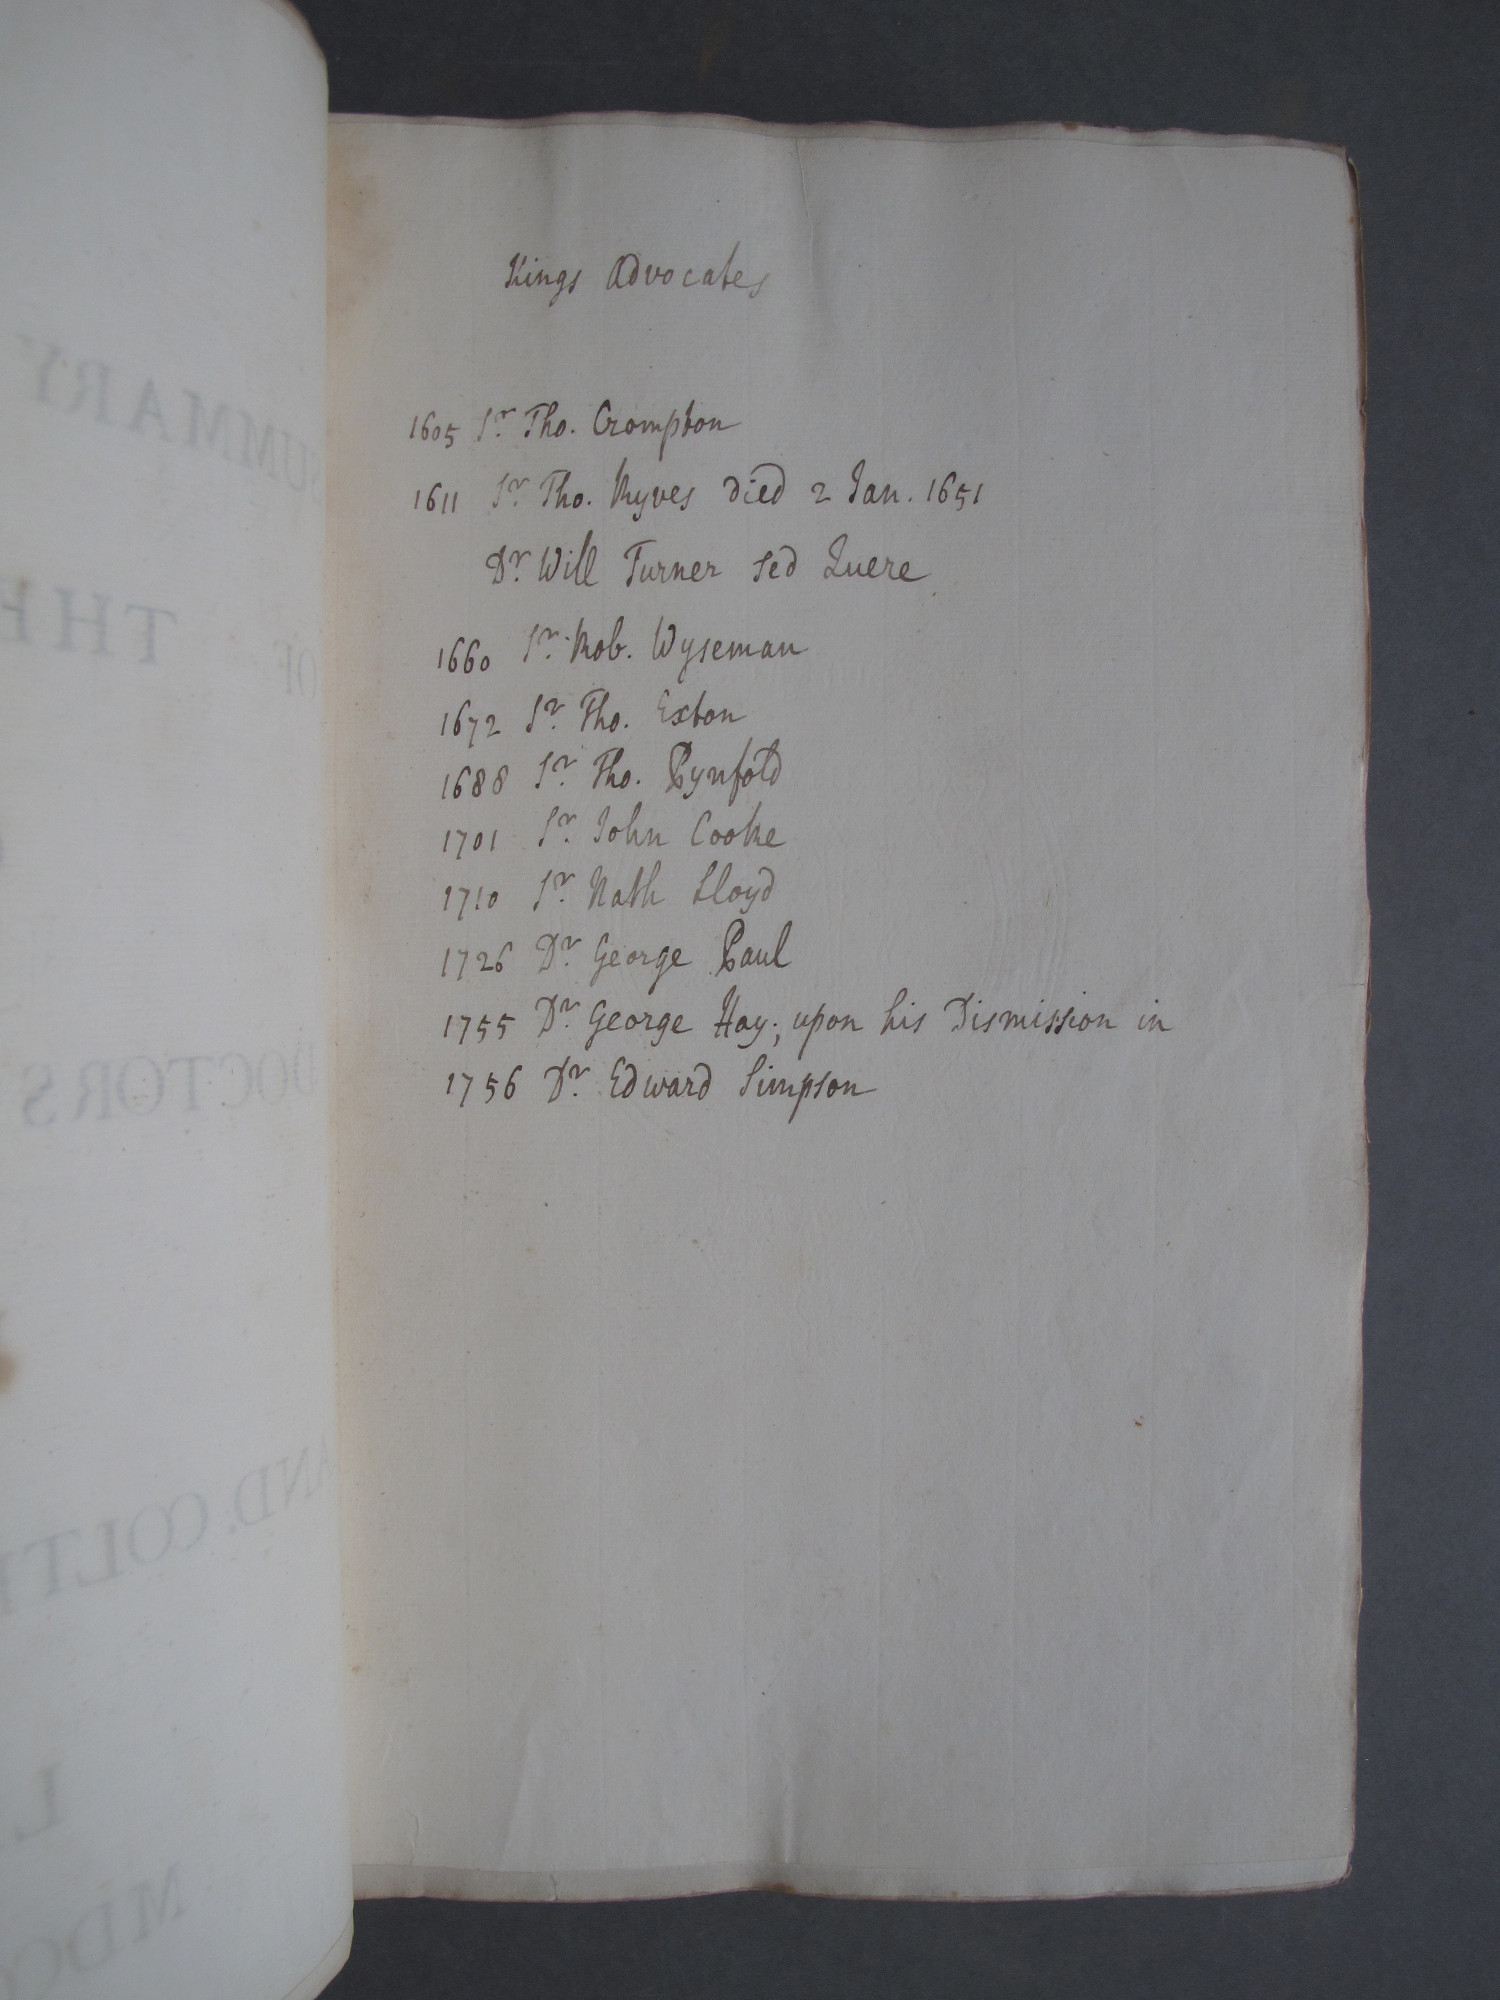 Kings Advocates
1605 Sr. Tho. Crompton
1611 Sr. Tho. Ryves died 2 Jan. 1651
Dr. Will Turner sed Quere
1660 Sr. Rob. Wyseman
1672 Sr. Tho. Exton
1688 Sr. Tho. Pynfold
1701 Sr. John Cooke
1710 Sr. Nath Lloyd
1726 Dr. George Paul
1755 Dr. George Hay; upon his Dismission in
1756 Dr. Edward Simpson
SUMMARY
OF THE
DOCTORS
AND. COLT
L
MDC